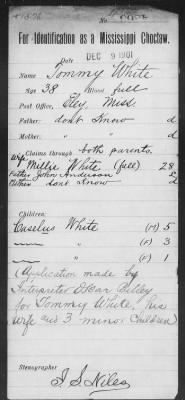 For Identification as a Mississippi Choctaw.
DEC 9 1901
Date
Name Tommy White
Age 38 Blood full
Post Office, Eley, Miss.
Father: dont Know d
Mother: " " d
Claims through both parents.
Wife Millie White (full) 28
Father John Anderson
Mother dont Know d
Children:
Caselus White (m) 5
(F) 3
(F) 1
(Application made by
Interpreter
for Tommy White, his
wife and 3 minor children)
Stenographer